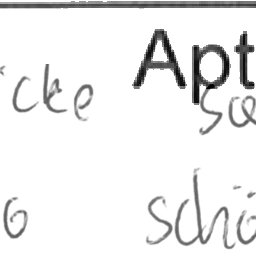 Apt
icke sa
o schö